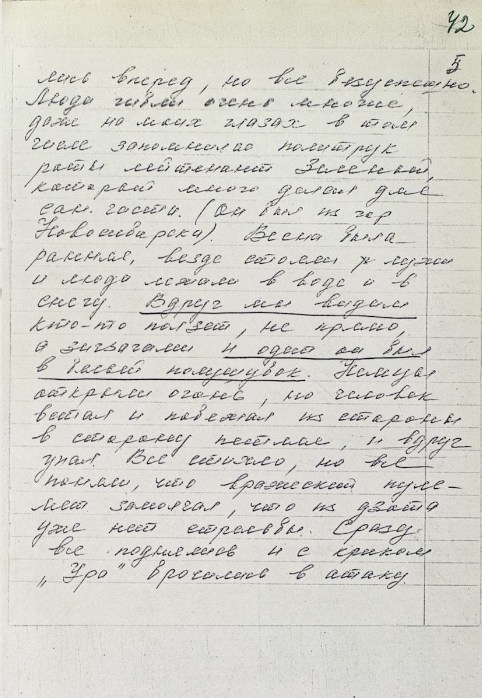 42
5
лись вперед, но все безуспешно.
Люди гибли очень многие,
даже на моих глазах в том
числе запомнился политрук
роты лейтенант Зеленый,
который много делал для
сан. части. (Он был из гор
Новосибирска). Весна была
ранняя, везде стояли лужи
и люди лежали в воде и в
снегу. Вдруг мы видим
кто-то ползет, не прямо,
а зигзагами и одет он был
в белый полушубок. Немцы
открыли огонь, но человек
встал и побежал из стороны
в сторону петляя, и вдруг
упал. Все стихло, но все
поняли, что вражеский пуле-
мет замолчал, что из дзота
уже нет стрельбы. Сразу
все поднялись и с криком
„Ура" бросились в атаку.